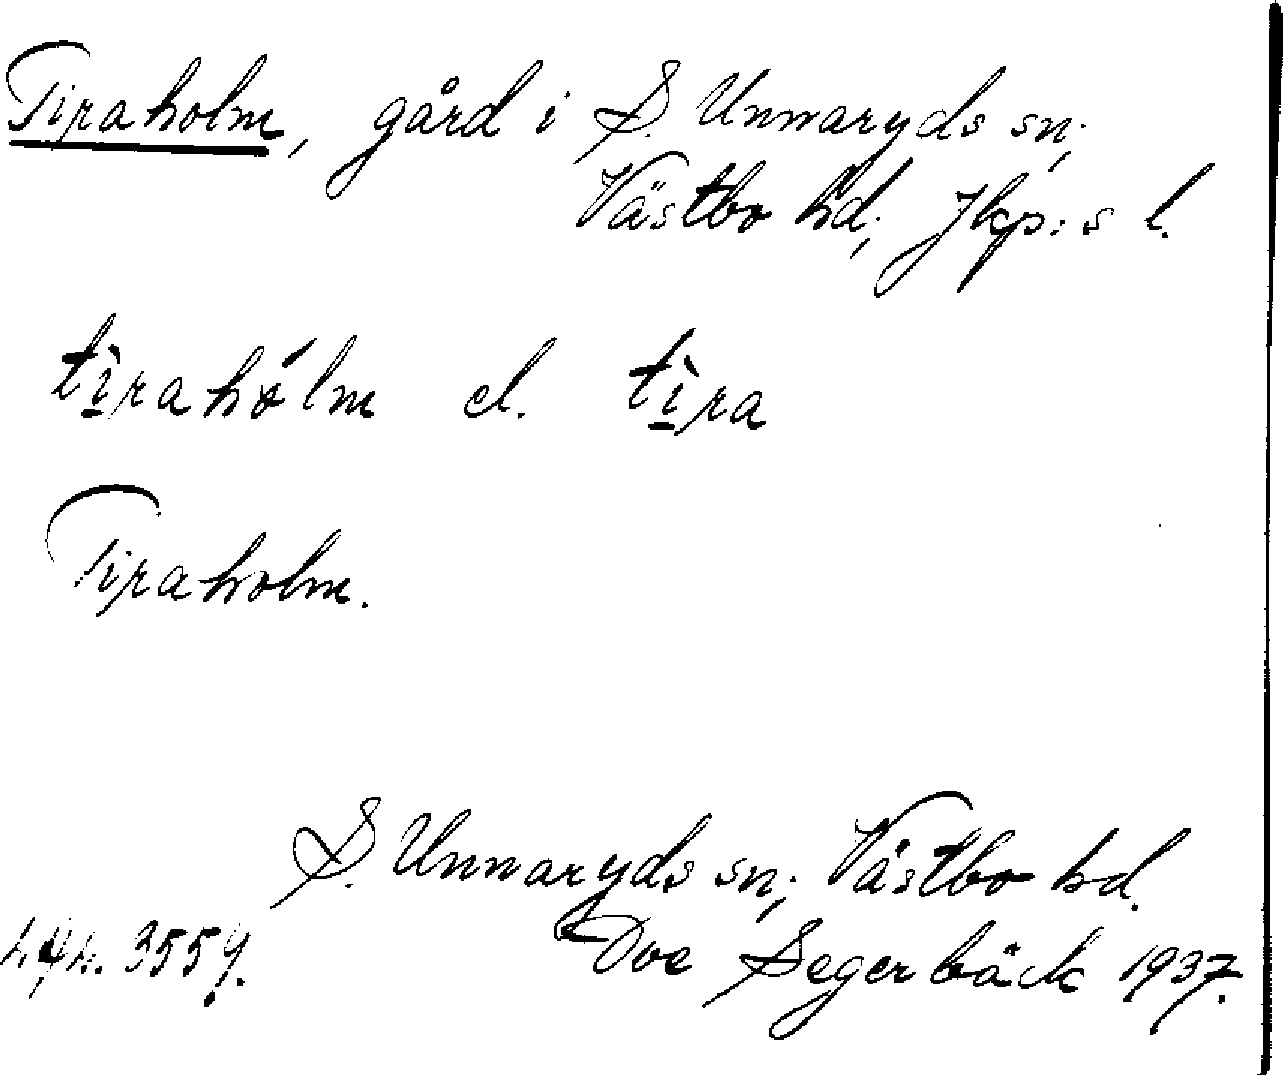 Tiraholm, gård i S. Unnaryds sn;
Västbo hd; Jkp:s l.
tìrahólm el. tìra
Tiraholm.
S. Unnaryds sn; Västbo hd.
3559. Ove Segerbäck 1937.